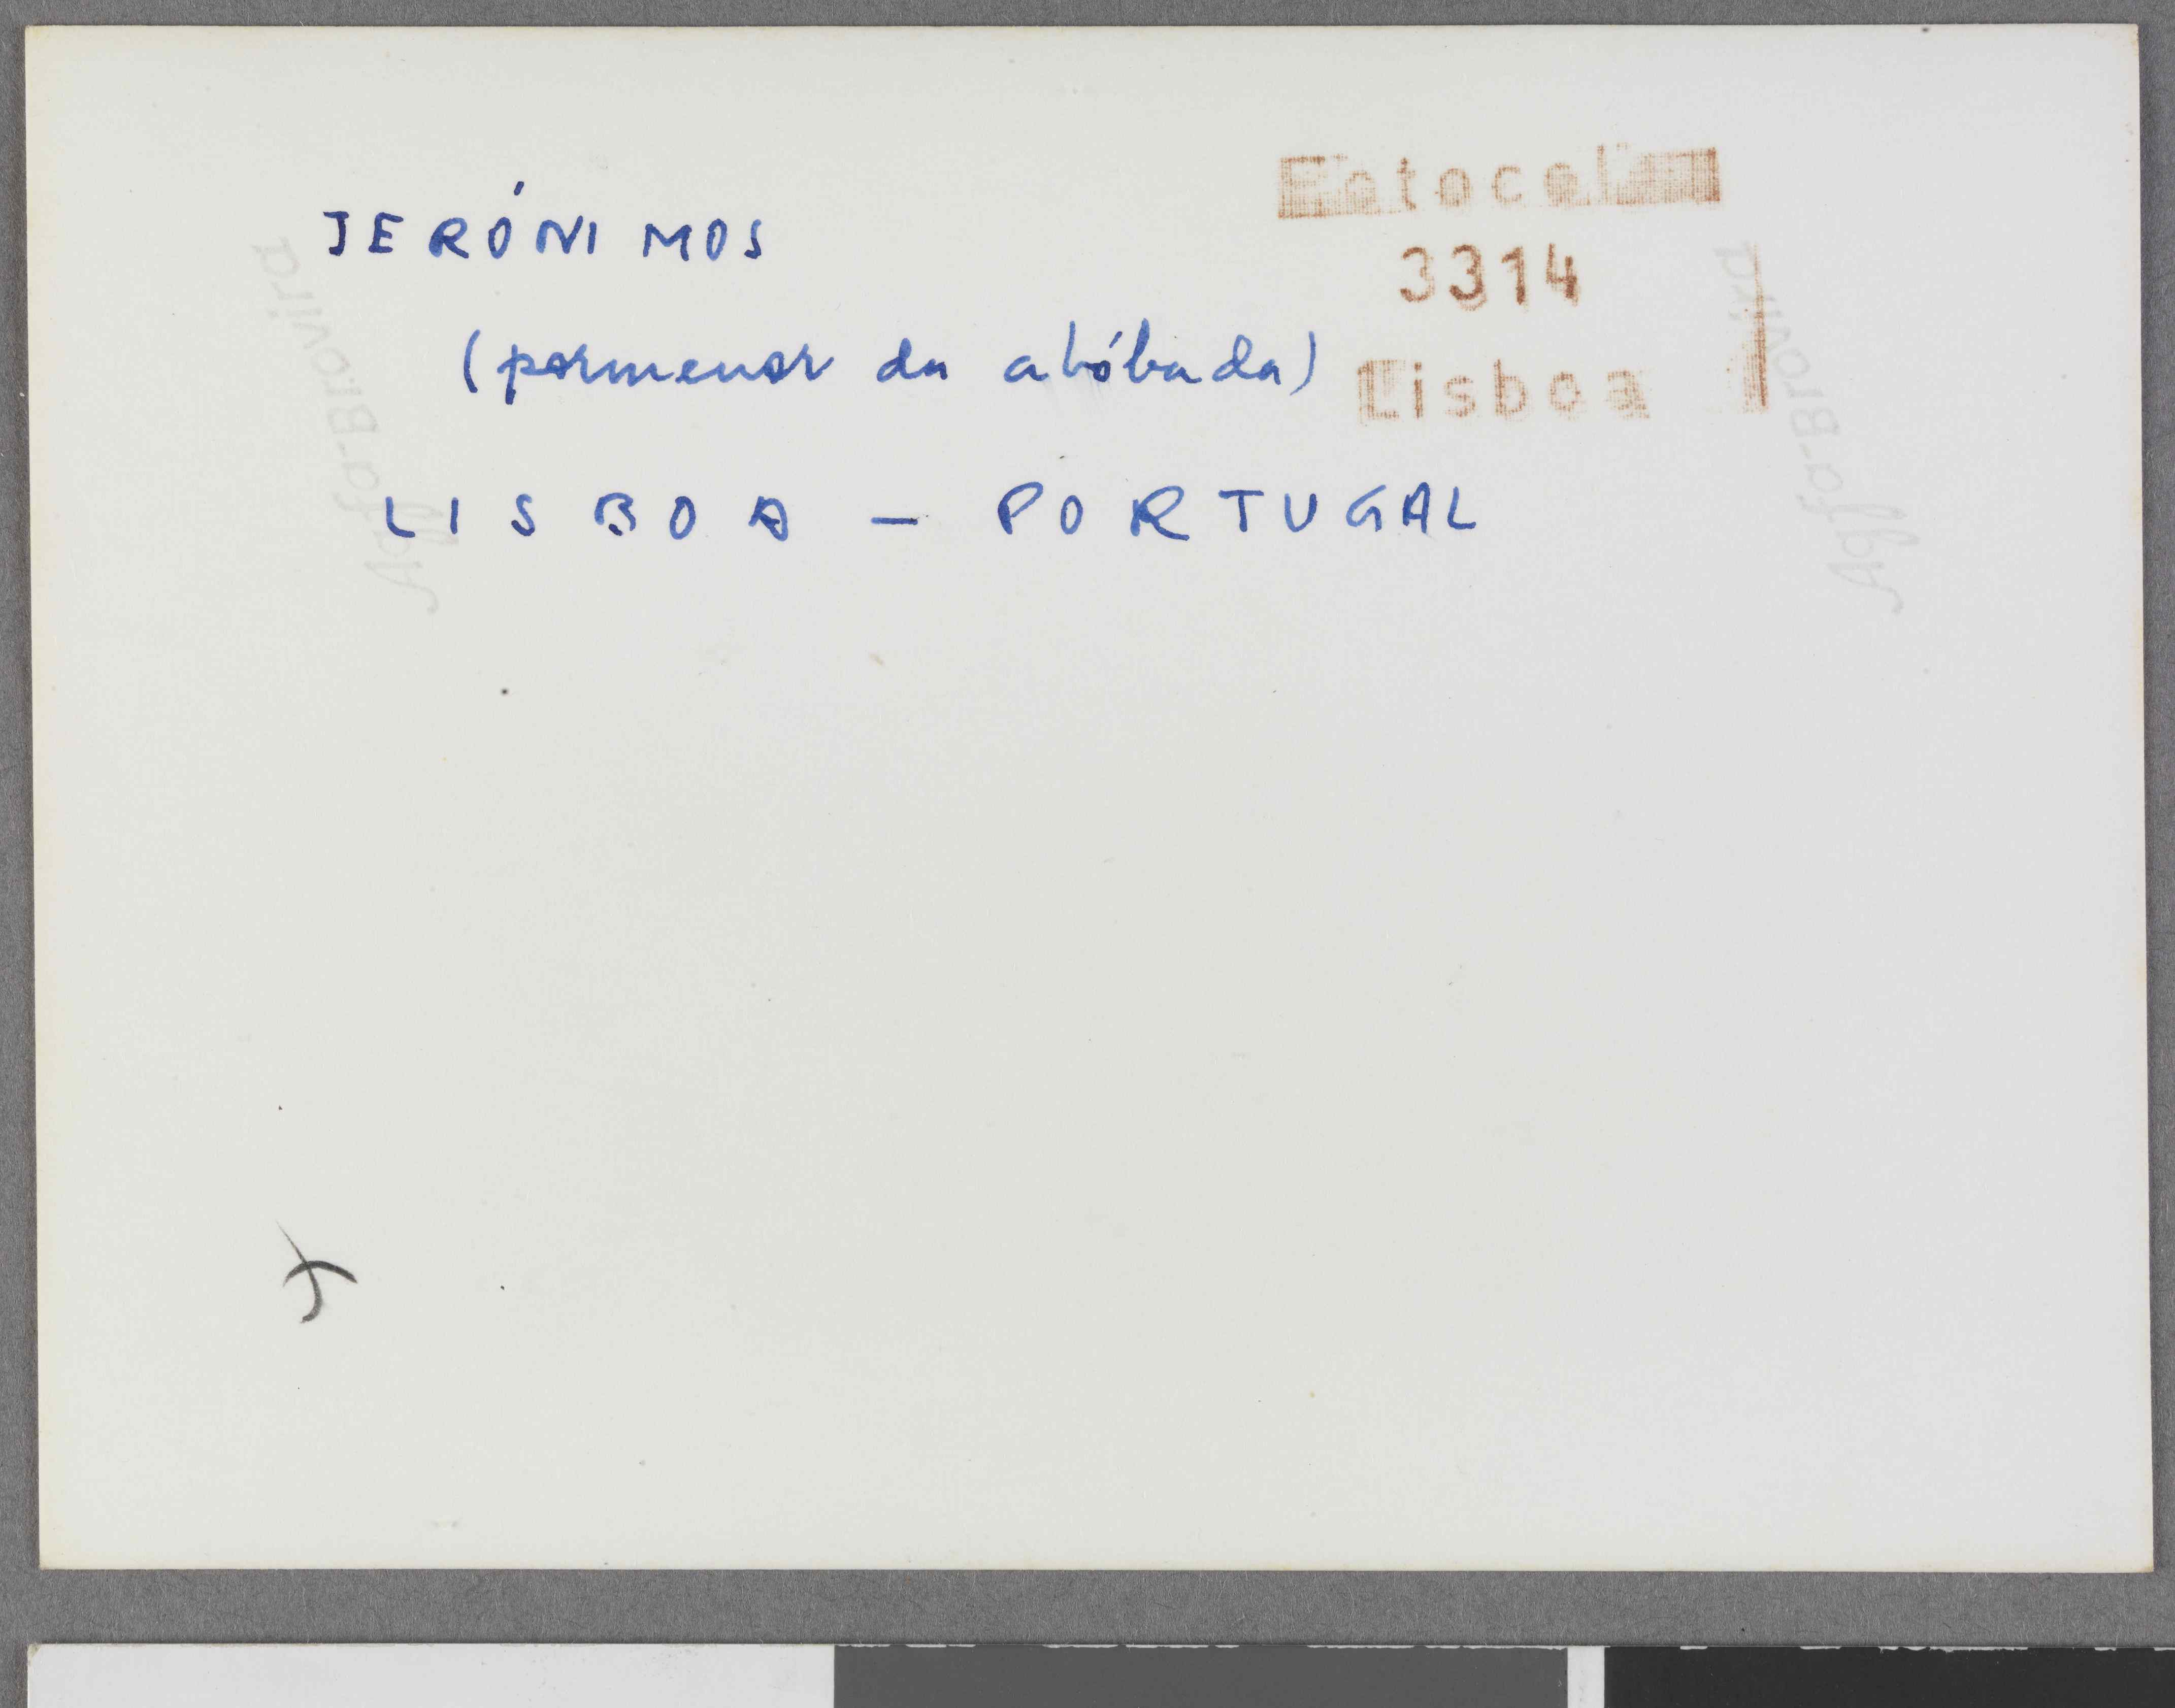 JERÓNIMOS
(pormenor da abóbada)
LISBOA - PORTUGAL
Fotocelu
3314
Lisboa
Agfa-Brovira
Agfa-Brovira